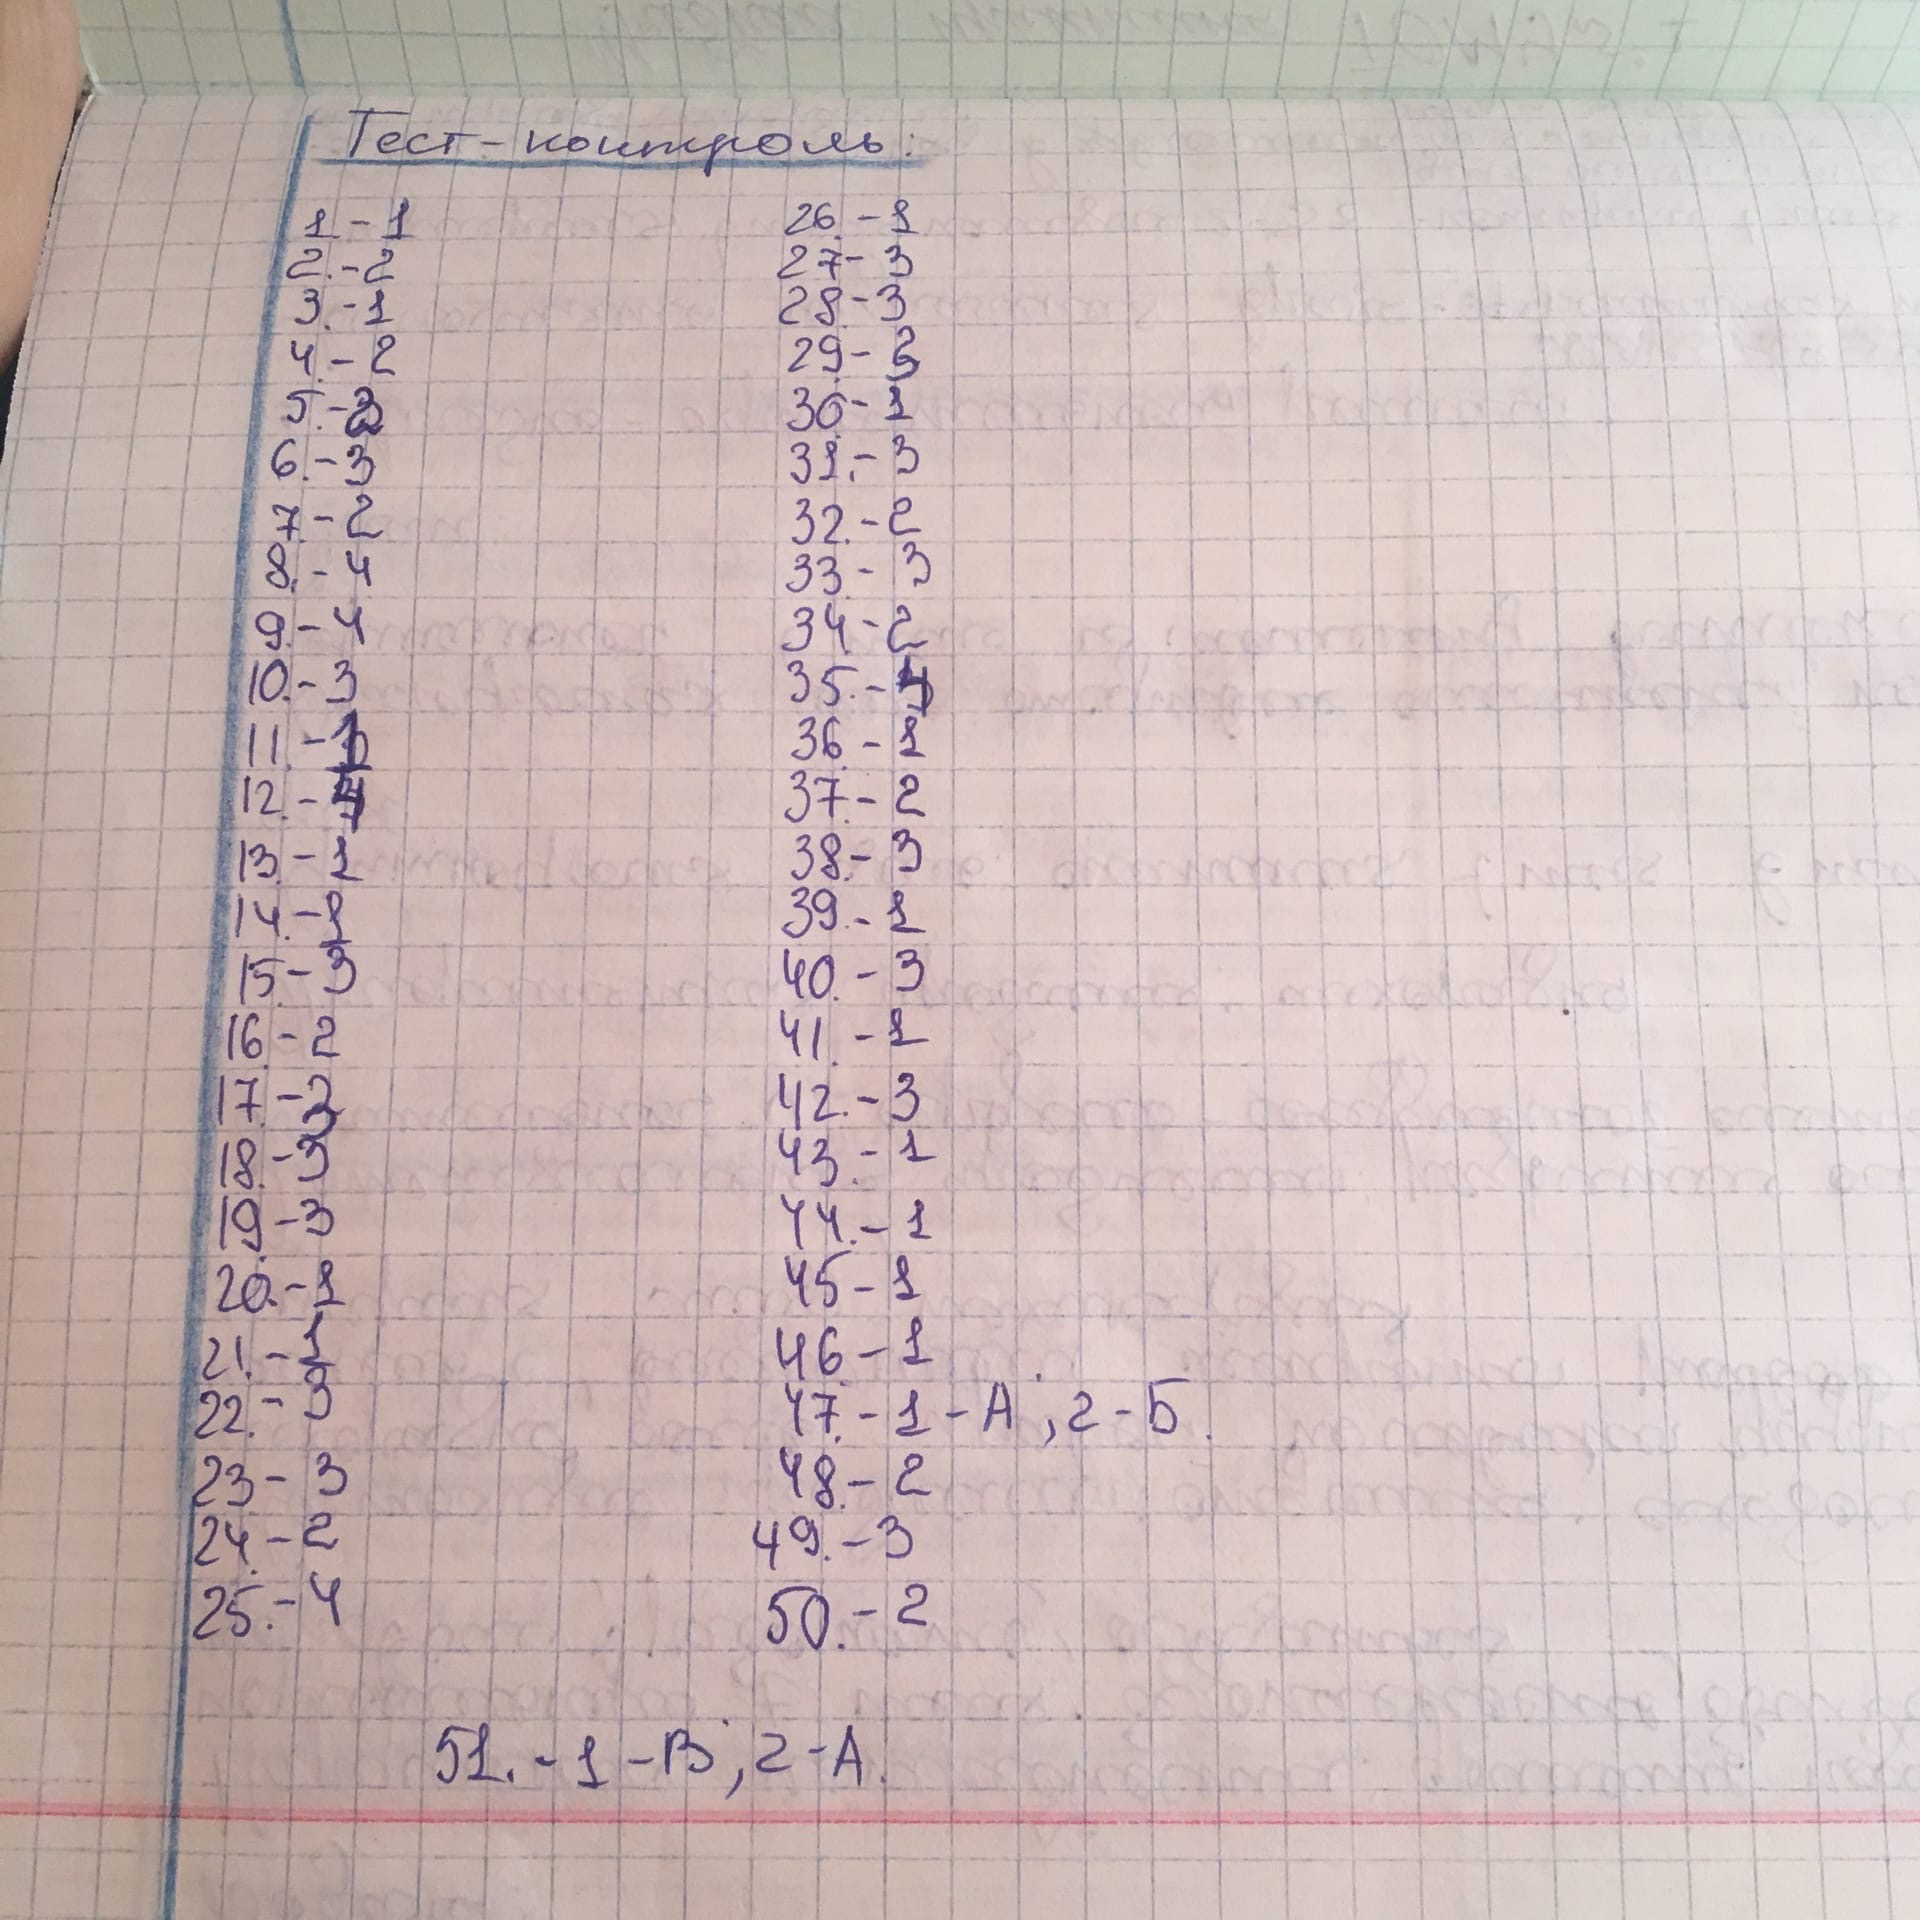 Тест-контроль:
1 - 1
2. - 2
3. - 1
4. - 2
5. -
6. - 3
7. - 2
8. - 4
9. - 4
10. - 3
11. -
12. -
13. - 1
14. - 2
15. - 3
16. - 2
17. - 2
18. - 3
19. - 3
20. - 1
21. - 1
22. - 3
23 - 3
24. - 2
25. - 4
26. - 1
27 - 3
28. - 3
29. - 2
30. - 1
31. - 3
32. - 2
33. - 3
34 - 2
35. -
36. - 1
37. - 2
38. - 3
39. - 1
40. - 3
41. - 1
42. - 3
43. - 1
44. - 1
45 - 1
46. - 1
47. - 1 - А, 2 - Б.
48. - 2
49. - 3
50. - 2
51. - 1 - В, 2 - А.